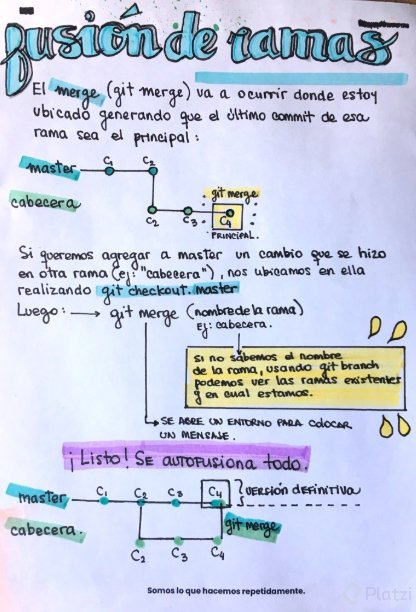 fusión de ramas
El merge (git merge) va a ocurrir donde estoy
ubicado generando que el último commit de esa
rama sea el principal:
master C1 C2
git merge
cabecera
C2 C3 C4
PRINCIPAL.
Si queremos agregar a master un cambio que se hizo
en otra rama (ej: "cabecera"), nos ubicamos en ella
realizando git checkout. master
Luego: git merge (nombre de la rama)
Ej: cabecera.
si no sabemos el nombre
de la rama, usando git branch
podemos ver las ramas existentes
y en cual estamos.
SE ABRE UN ENTORNO PARA COLOCAR
UN MENSAJE.
¡Listo! SE AUTOFUSIONA todo.
master C1 C2 C3 C4 VERSIÓN DEFINITIVA
cabecera. git merge
C2 C3 C4
Somos lo que hacemos repetidamente.
Platzi